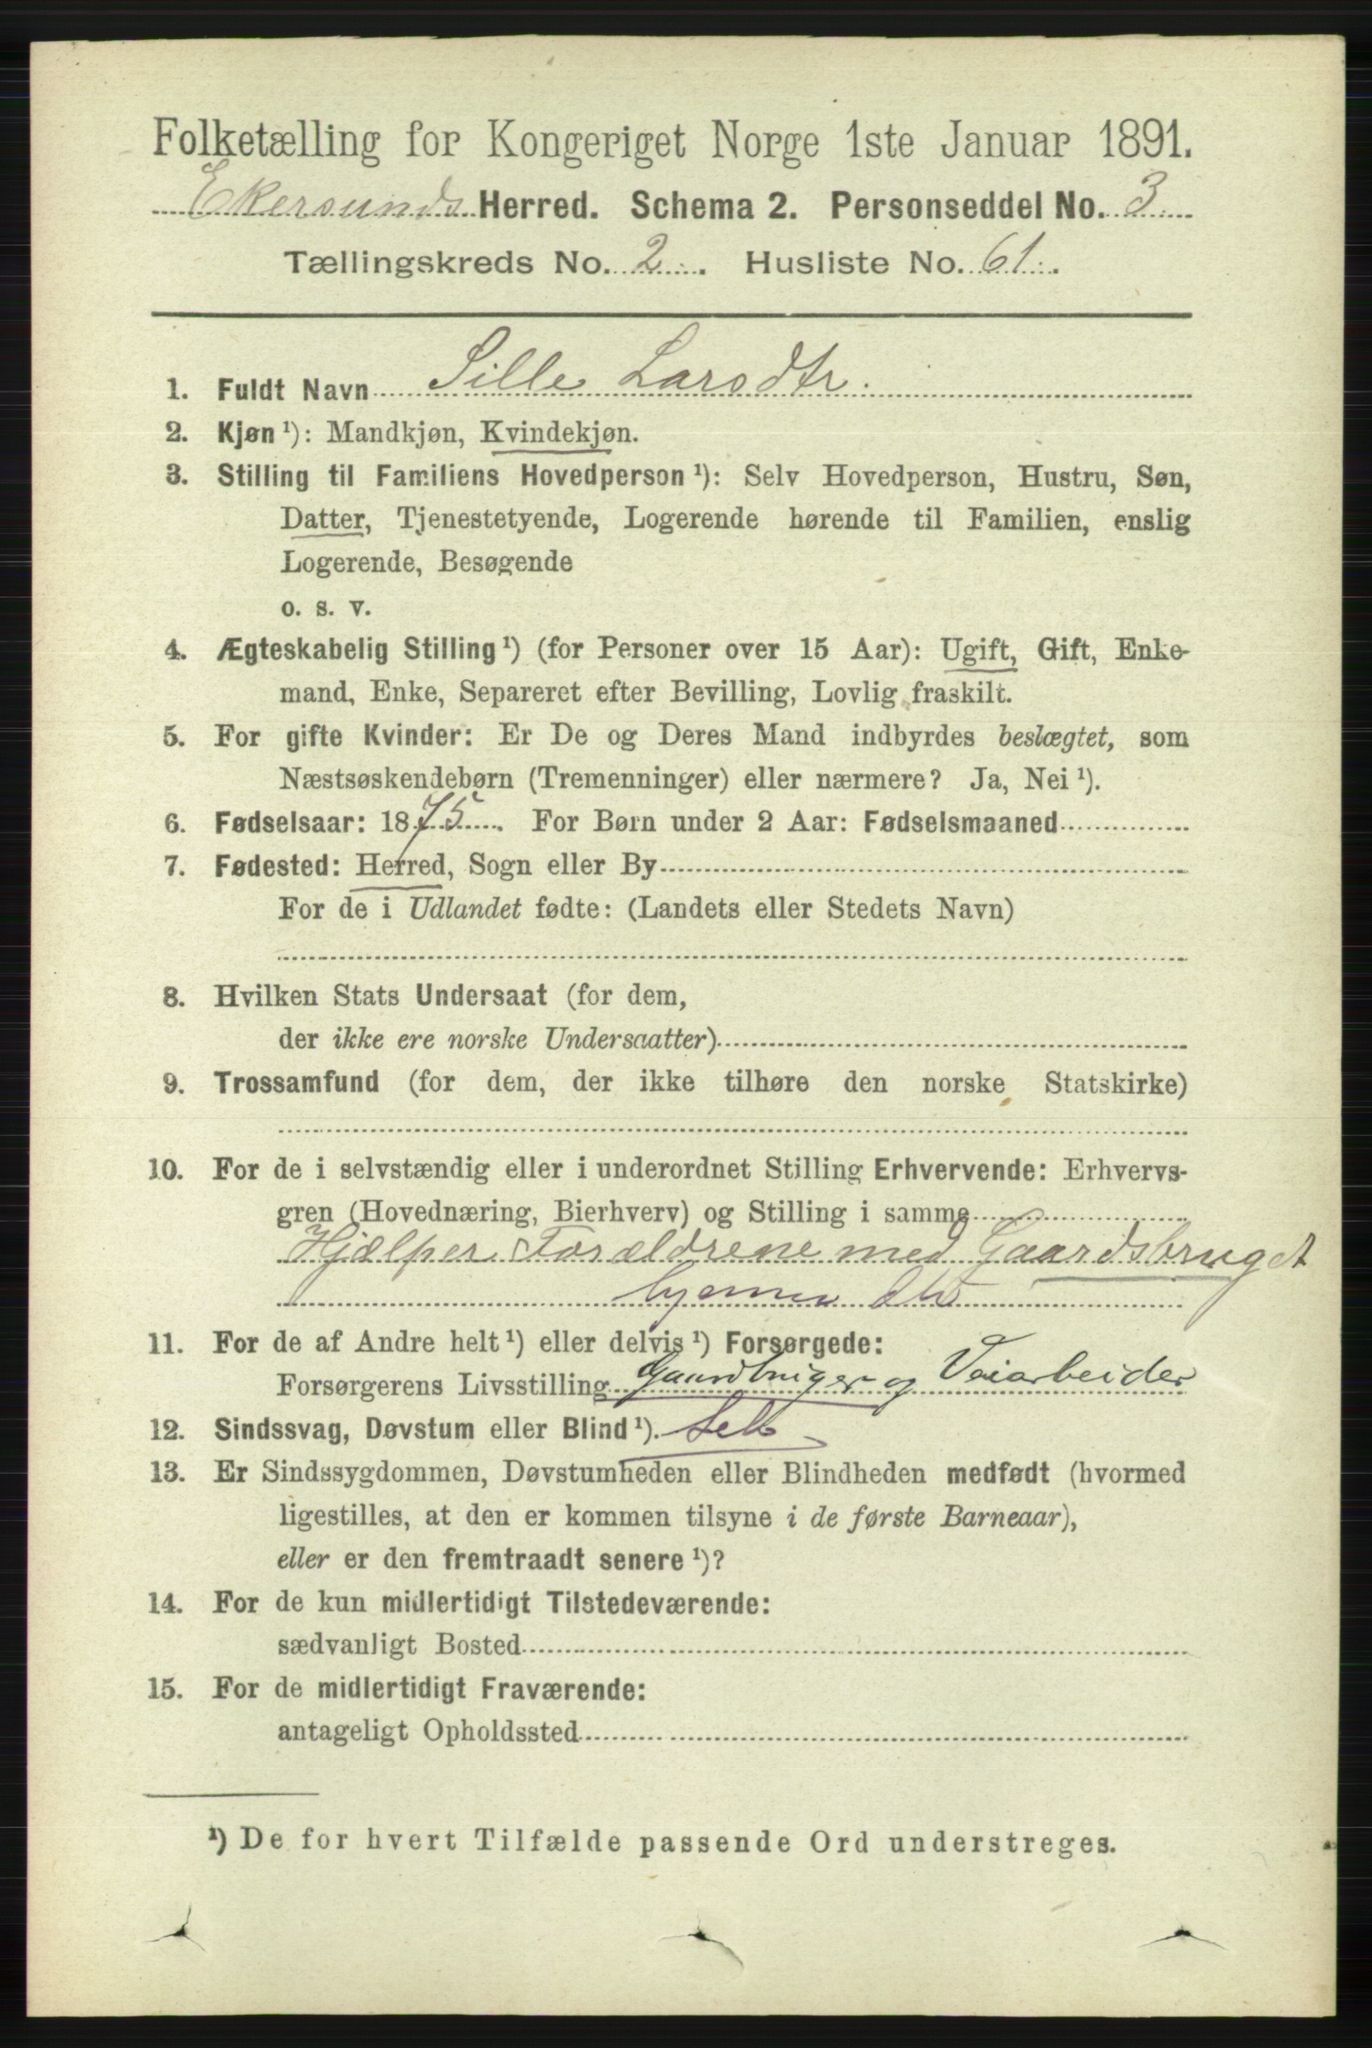 Folketælling for Kongeriget Norge 1ste Januar 1891.
Ekersunds Herred. Schema 2. Personseddel No. 3
Tællingskreds No. 2. Husliste No. 61.
1. Fuldt Navn Sille Larsdtr.
2. Kjøn ¹): Mandkjøn, Kvindekjøn.
3. Stilling til Familiens Hovedperson ¹): Selv Hovedperson, Hustru, Søn,
Datter, Tjenestetyende, Logerende hørende til Familien, enslig
Logerende, Besøgende
o. s. v.
4. Ægteskabelig Stilling ¹) (for Personer over 15 Aar): Ugift, Gift, Enke-
mand, Enke, Separeret efter Bevilling, Lovlig fraskilt.
5. For gifte Kvinder: Er De og Deres Mand indbyrdes beslægtet, som
Næstsøskendebørn (Tremenninger) eller nærmere? Ja, Nei ¹).
6. Fødselsaar: 1875. For Børn under 2 Aar: Fødselsmaaned
7. Fødested: Herred, Sogn eller By
For de i Udlandet fødte: (Landets eller Stedets Navn)
8. Hvilken Stats Undersaat (for dem,
der ikke ere norske Undersaatter)
9. Trossamfund (for dem, der ikke tilhøre den norske Statskirke)
10. For de i selvstændig eller i underordnet Stilling Erhvervende: Erhvervs-
gren (Hovednæring, Bierhverv) og Stilling i samme
Hjælper Forældrene med Gaardsbruget
11. For de af Andre helt ¹) eller delvis ¹) Forsørgede:
Forsørgerens Livsstilling Gaardbruger og Veiarbeider
12. Sindssvag, Døvstum eller Blind ¹).
13. Er Sindssygdommen, Døvstumheden eller Blindheden medfødt (hvormed
ligestilles, at den er kommen tilsyne i de første Barneaar),
eller er den fremtraadt senere ¹)?
14. For de kun midlertidigt Tilstedeværende:
sædvanligt Bosted
15. For de midlertidigt Fraværende:
antageligt Opholdssted
¹) De for hvert Tilfælde passende Ord understreges.